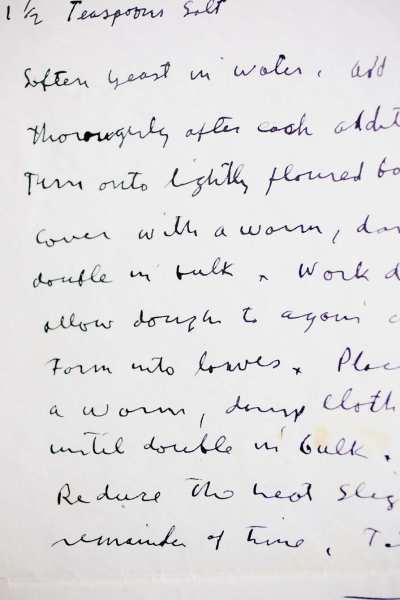 1 1/2 Teaspoons Salt
Soften yeast in water. Add
thoroughly after each addit
Turn onto lightly floured bo
cover with a warm, da
double in bulk. Work d
allow dough to again
Form into loaves. Plac
a warm, damp cloth
until double in bulk.
Reduce the heat slig
remainder of time. T